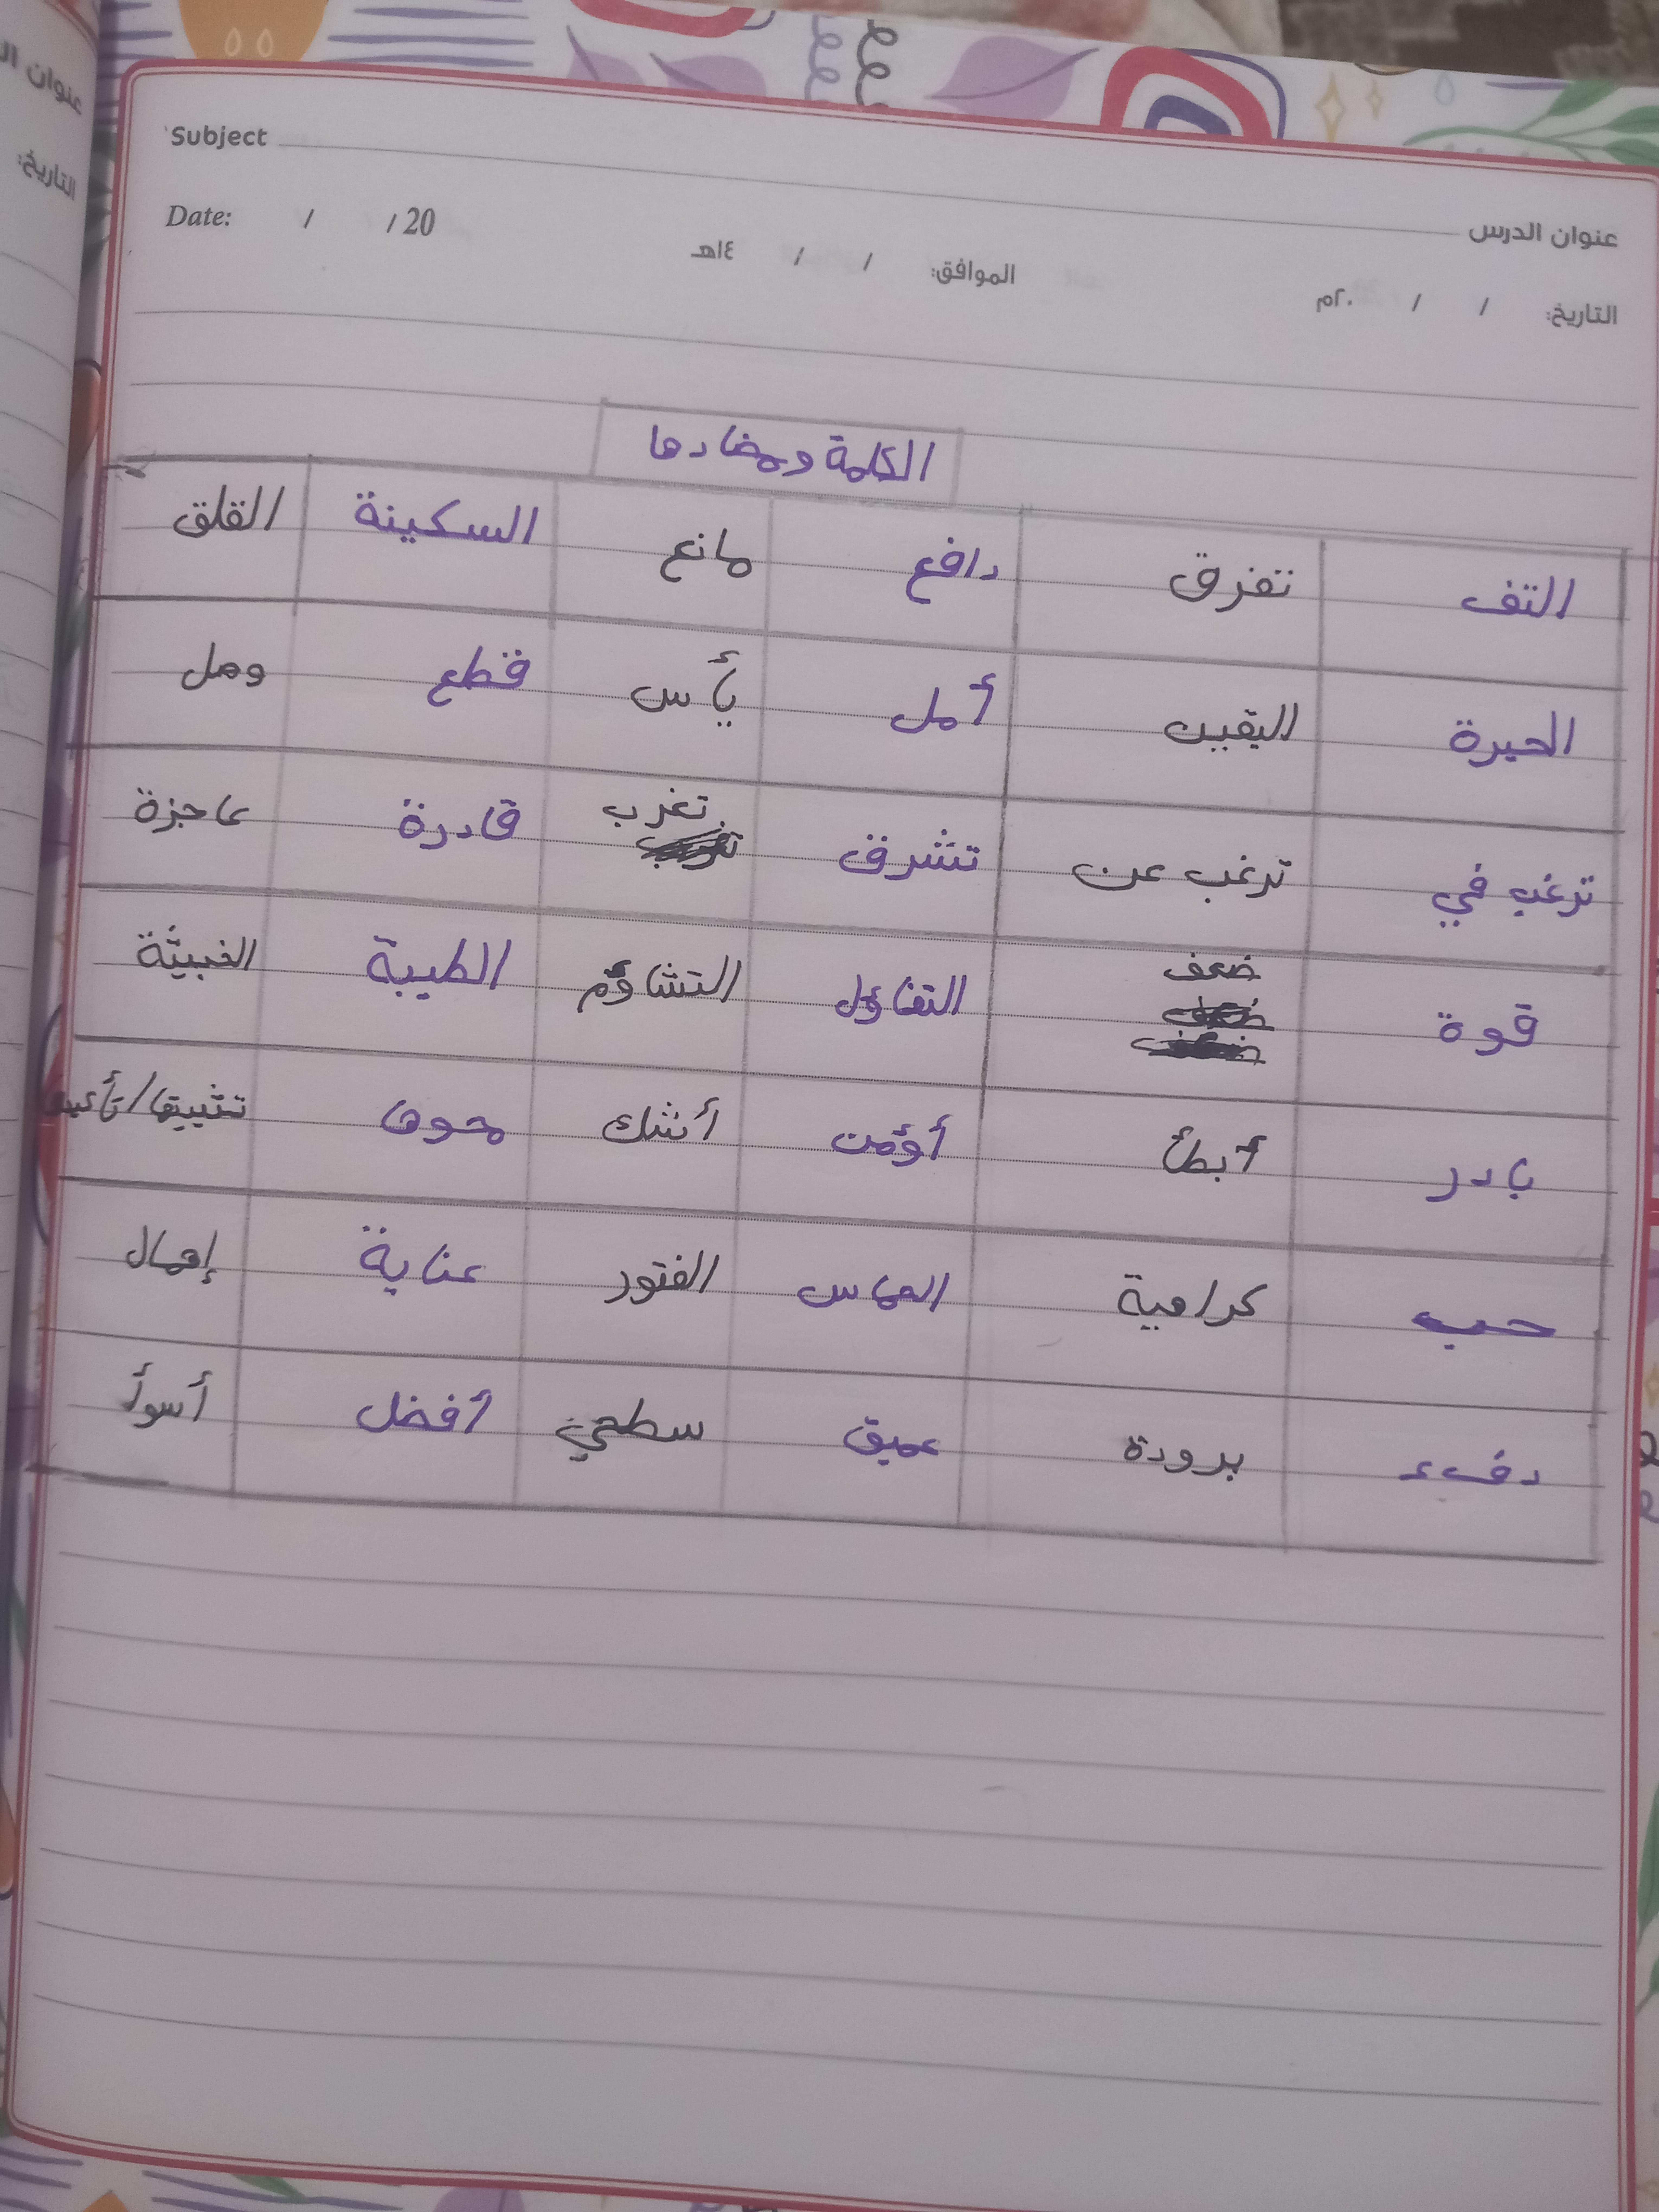 Subject
عنوان الدرس
Date: / / 20
الموافق: / / ١٤هـ
التاريخ: / / ٢٠م
الكلمة ومضادها
التف تفرق دافع مانع السكينة القلق
الحيرة اليقين أمل يأس قطع وصل
ترغب في ترغب عن تشرق تغرب قادرة عاجزة
قوة ضعف التفاؤل التشاؤم الطيبة الخبيثة
بادر أبطأ أؤمن أشك محوها تثبيتها/
حب كراهية الحماس الفتور عناية إهمال
دفء برودة عميق سطحي أفضل أسوأ
عنوان ال
التاريخ: